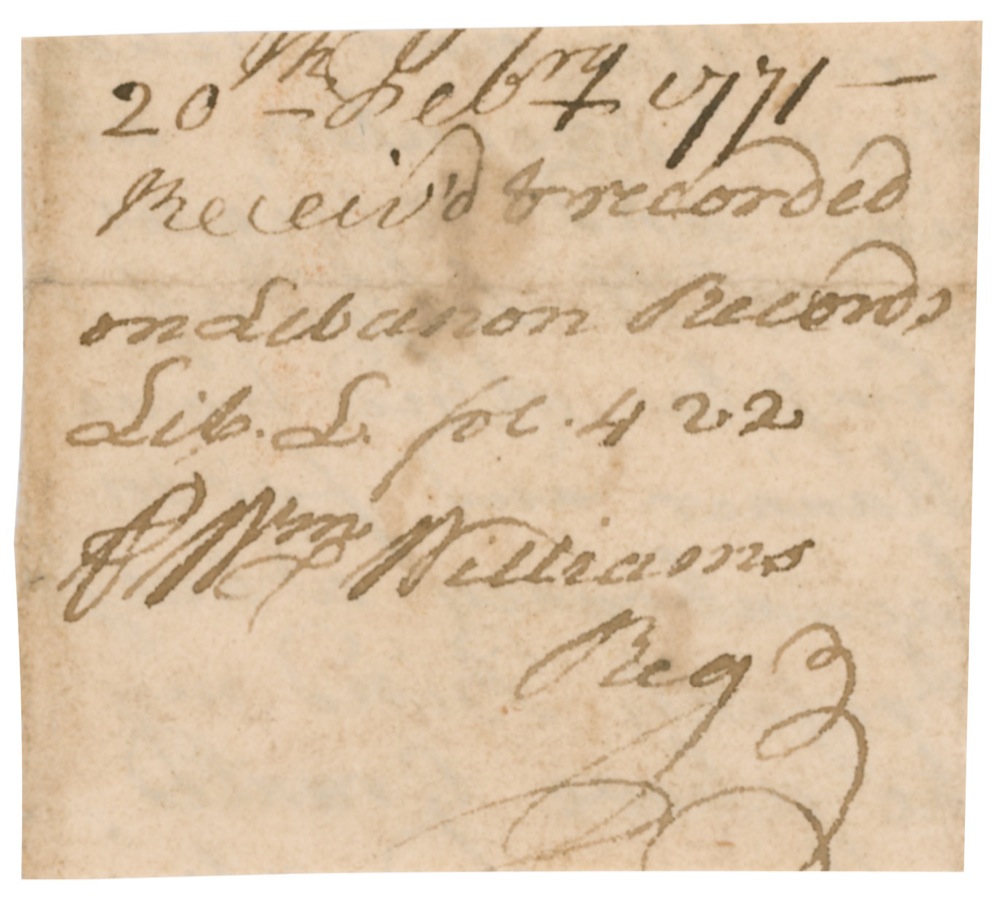 20th Febry 1771 —
Receiv'd & recorded
on Lebanon Records
Lib. L. fol. 422
₱ Wm Williams
Reg